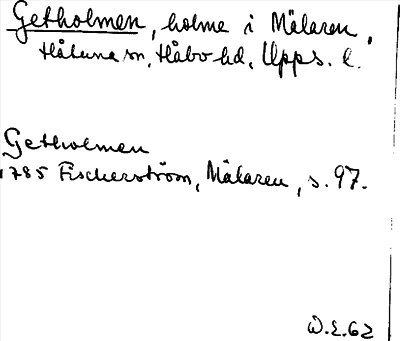 Getholmen, holme i Mälaren,
Håtuna sn, Håbo hd, Upps. l.
Getholmen
1785 Fischerström, Mälaren, s. 97.
W.E.62